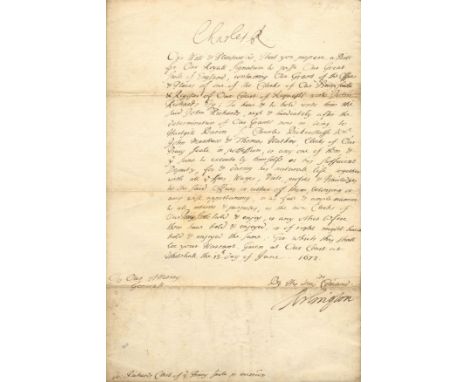 Charles R
Our Will & Pleasure is, That you prepare a Bill
for Our Royall Signature to passe Our Great
Seale of England, containing Our Grant of the Office
& Places of one of the Clerks of Our Privy Seale
& Register of Our Court of Requests unto John
Richards Esq. To have & to hold unto him the
said John Richards, next & imediately after the
determination of Our Grants now in being to
Charles Bickerstaffe
John Mathew & Thomas Watkins Clerks of Our
Privy Seale in possession, or any one of them &
y same to execute by himselfe or his sufficient
Deputy, for & during his naturall life together
with all Wages, Diets, profits & Priviledges
to the said Offices or either of them belonging or
any wise appertaining, in as full & ample manner
to all intents & purposes, as the now Clerks of
Our Privy Seale hold & enjoy, or any other before
them have held & enjoyed, or of right ought to have
held & enjoyed the same. For which this shall
be your Warrant. Given at Our Court at
Whitehall the day of June 1672.
To Our Attorney
Generall
By His Ma.ts Comand
Arlington
Richards Clerk of y Privy Seale in